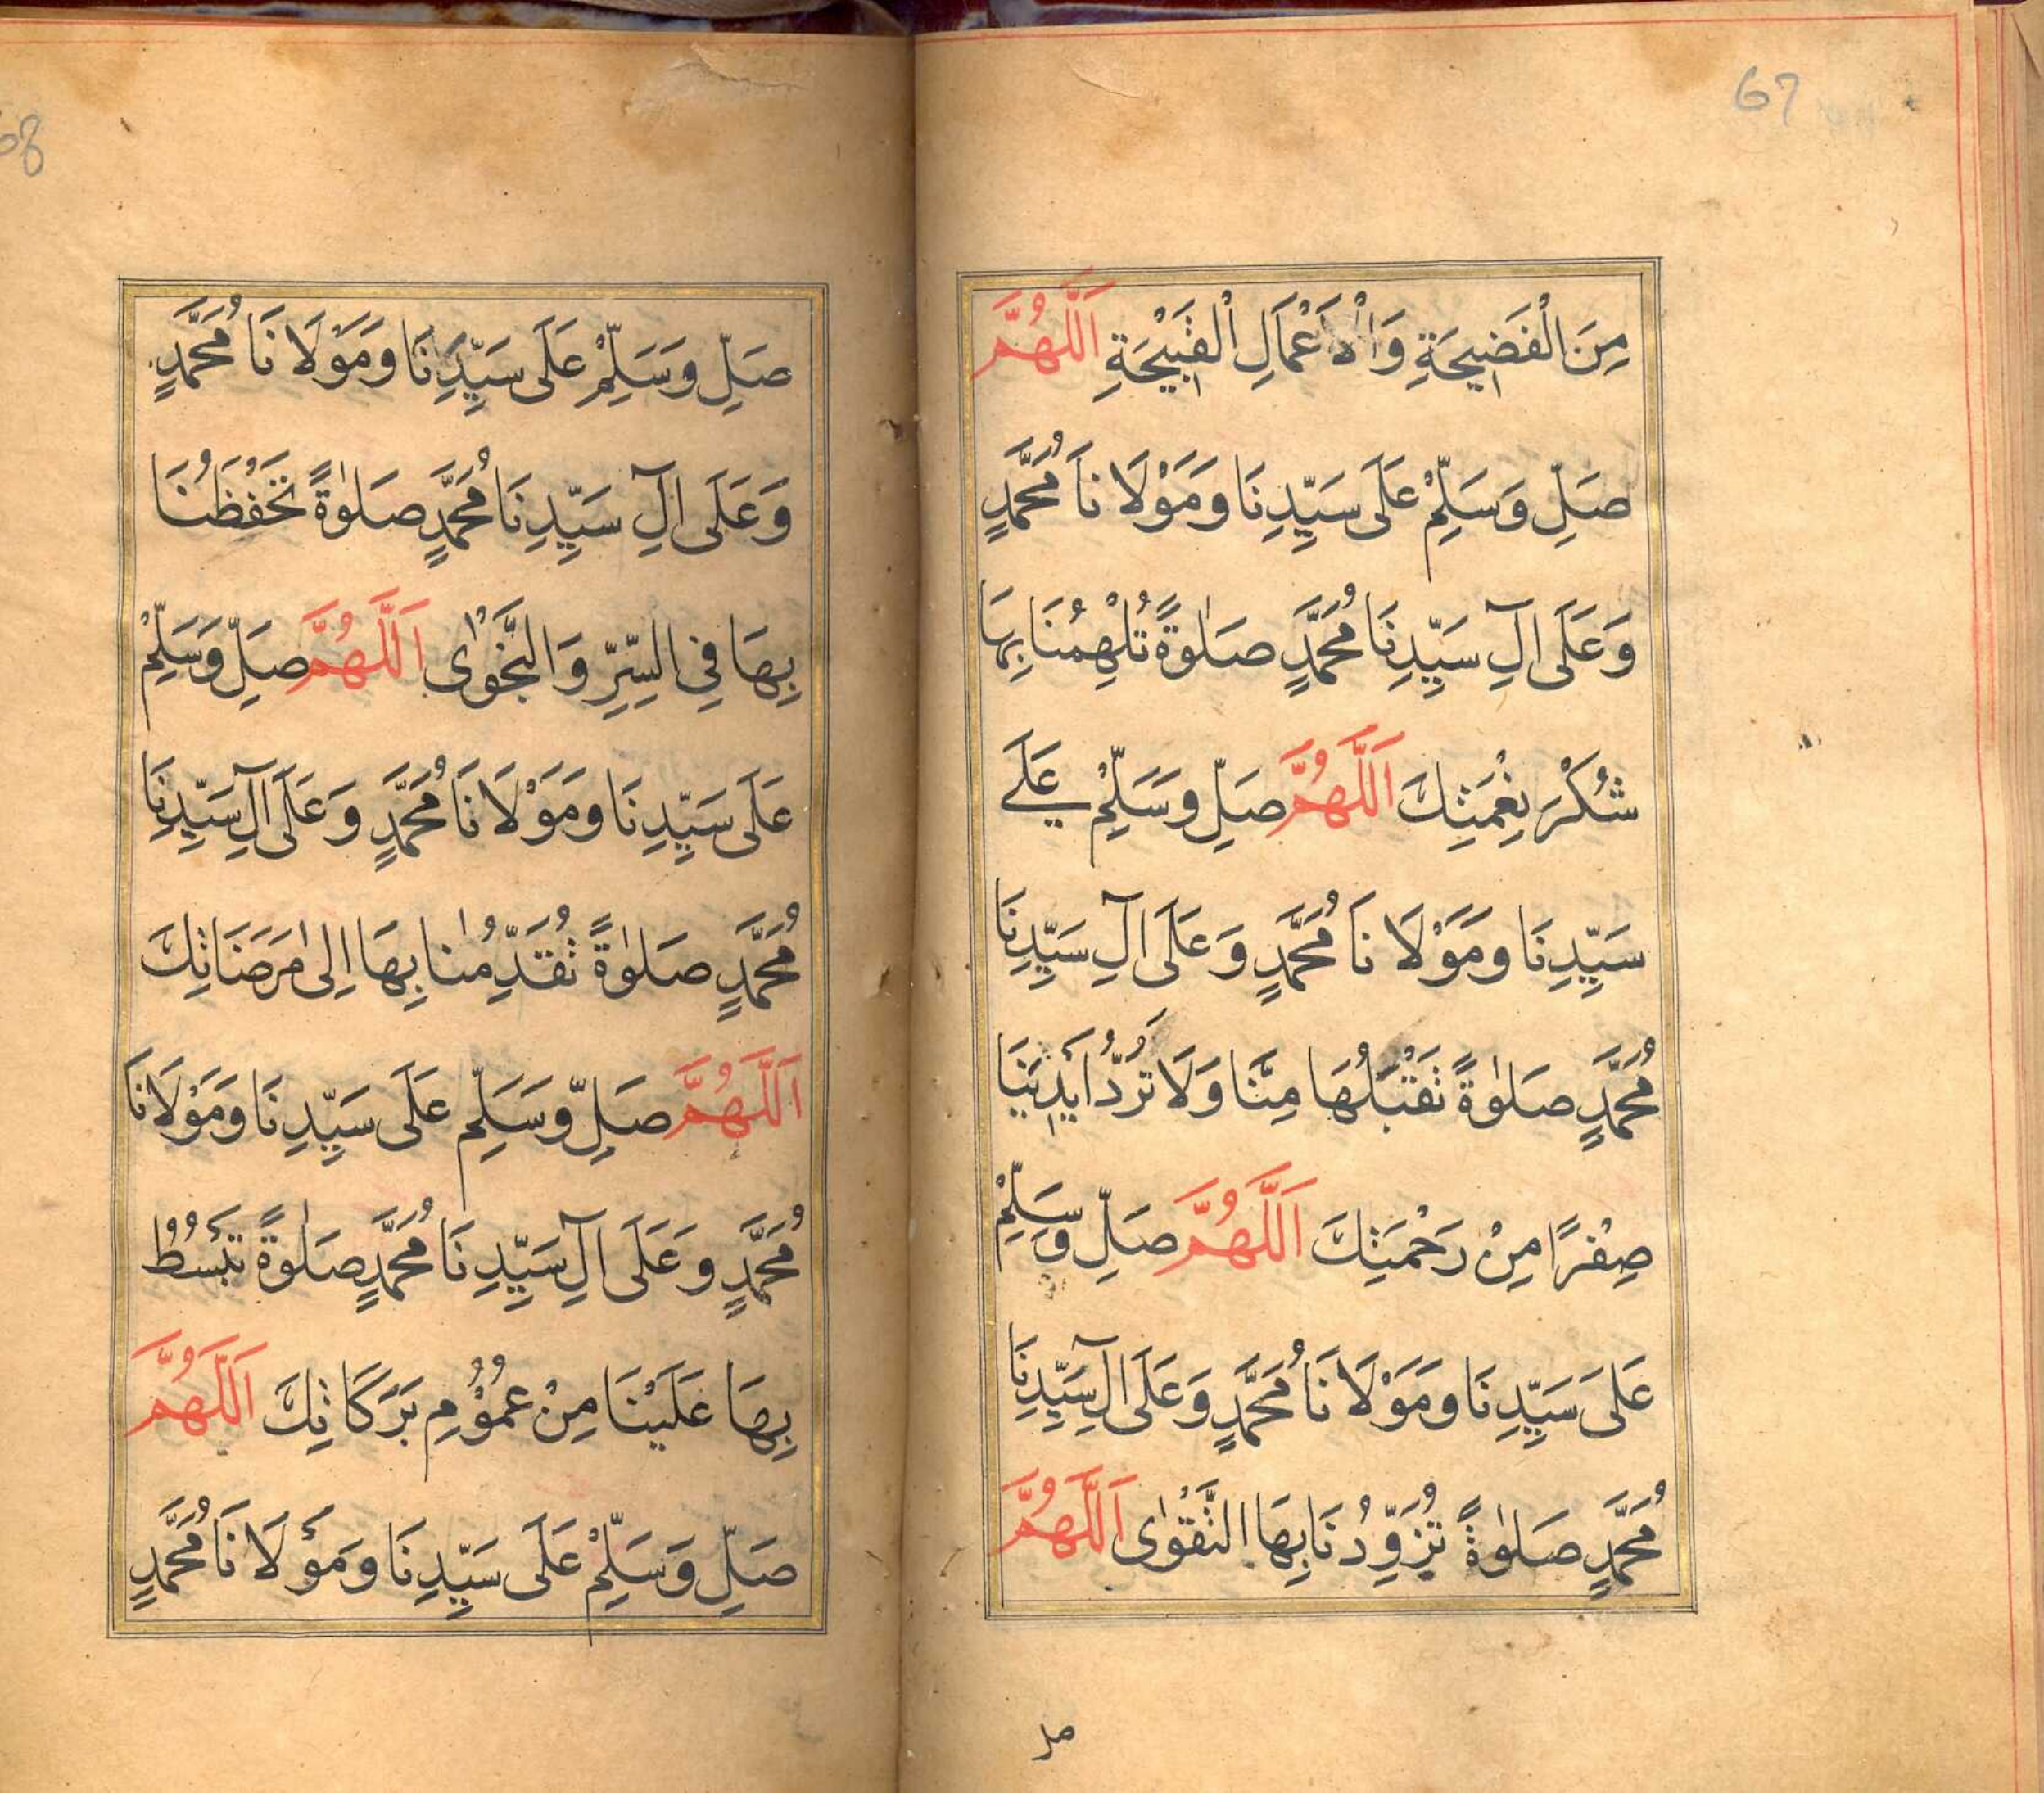 67
مِنَ الْفَضِيحَةِ وَالْاَعْمَالِ الْقَبِيْحَةِ اَللّٰهُمَّ
صَلِّ وَسَلِّمْ عَلَى سَيِّدِنَا وَمَوْلَانَا مُحَمَّدٍ
وَعَلَى اٰلِ سَيِّدِنَا مُحَمَّدٍ صَلٰوةً تُلْهِمُنَا بِهَا
شُكْرَ نِعْمَتِكَ اَللّٰهُمَّ صَلِّ وَسَلِّمْ عَلَے
سَيِّدِنَا وَمَوْلَانَا مُحَمَّدٍ وَعَلَى اٰلِ سَيِّدِنَا
مُحَمَّدٍ صَلٰوةً تَقْبَلُهَا مِنَّا وَلَا تَرُدُّ اَيْدِيَنَا
صِفْرًا مِنْ رَحْمَتِكَ اَللّٰهُمَّ صَلِّ وَسَلِّمْ
عَلَى سَيِّدِنَا وَمَوْلَانَا مُحَمَّدٍ وَعَلَى اٰلِ سَيِّدِنَا
مُحَمَّدٍ صَلٰوةً تُزَوِّدُنَا بِهَا التَّقْوٰى اَللّٰهُمَّ
صل
68
صَلِّ وَسَلِّمْ عَلَى سَيِّدِنَا وَمَوْلَانَا مُحَمَّدٍ
وَعَلَى اٰلِ سَيِّدِنَا مُحَمَّدٍ صَلٰوةً تَحْفَظُنَا
بِهَا فِي السِّرِّ وَالنَّجْوٰى اَللّٰهُمَّ صَلِّ وَسَلِّمْ
عَلَى سَيِّدِنَا وَمَوْلَانَا مُحَمَّدٍ وَعَلَى اٰلِ سَيِّدِنَا
مُحَمَّدٍ صَلٰوةً تُقَدِّمُنَا بِهَا اِلٰى مَرْضَاتِكَ
اَللّٰهُمَّ صَلِّ وَسَلِّمْ عَلَى سَيِّدِنَا وَمَوْلَانَا
مُحَمَّدٍ وَعَلَى اٰلِ سَيِّدِنَا مُحَمَّدٍ صَلٰوةً تَبْسُطُ
بِهَا عَلَيْنَا مِنْ عُمُوْمِ بَرَكَاتِكَ اَللّٰهُمَّ
صَلِّ وَسَلِّمْ عَلَى سَيِّدِنَا وَمَوْلَانَا مُحَمَّدٍ